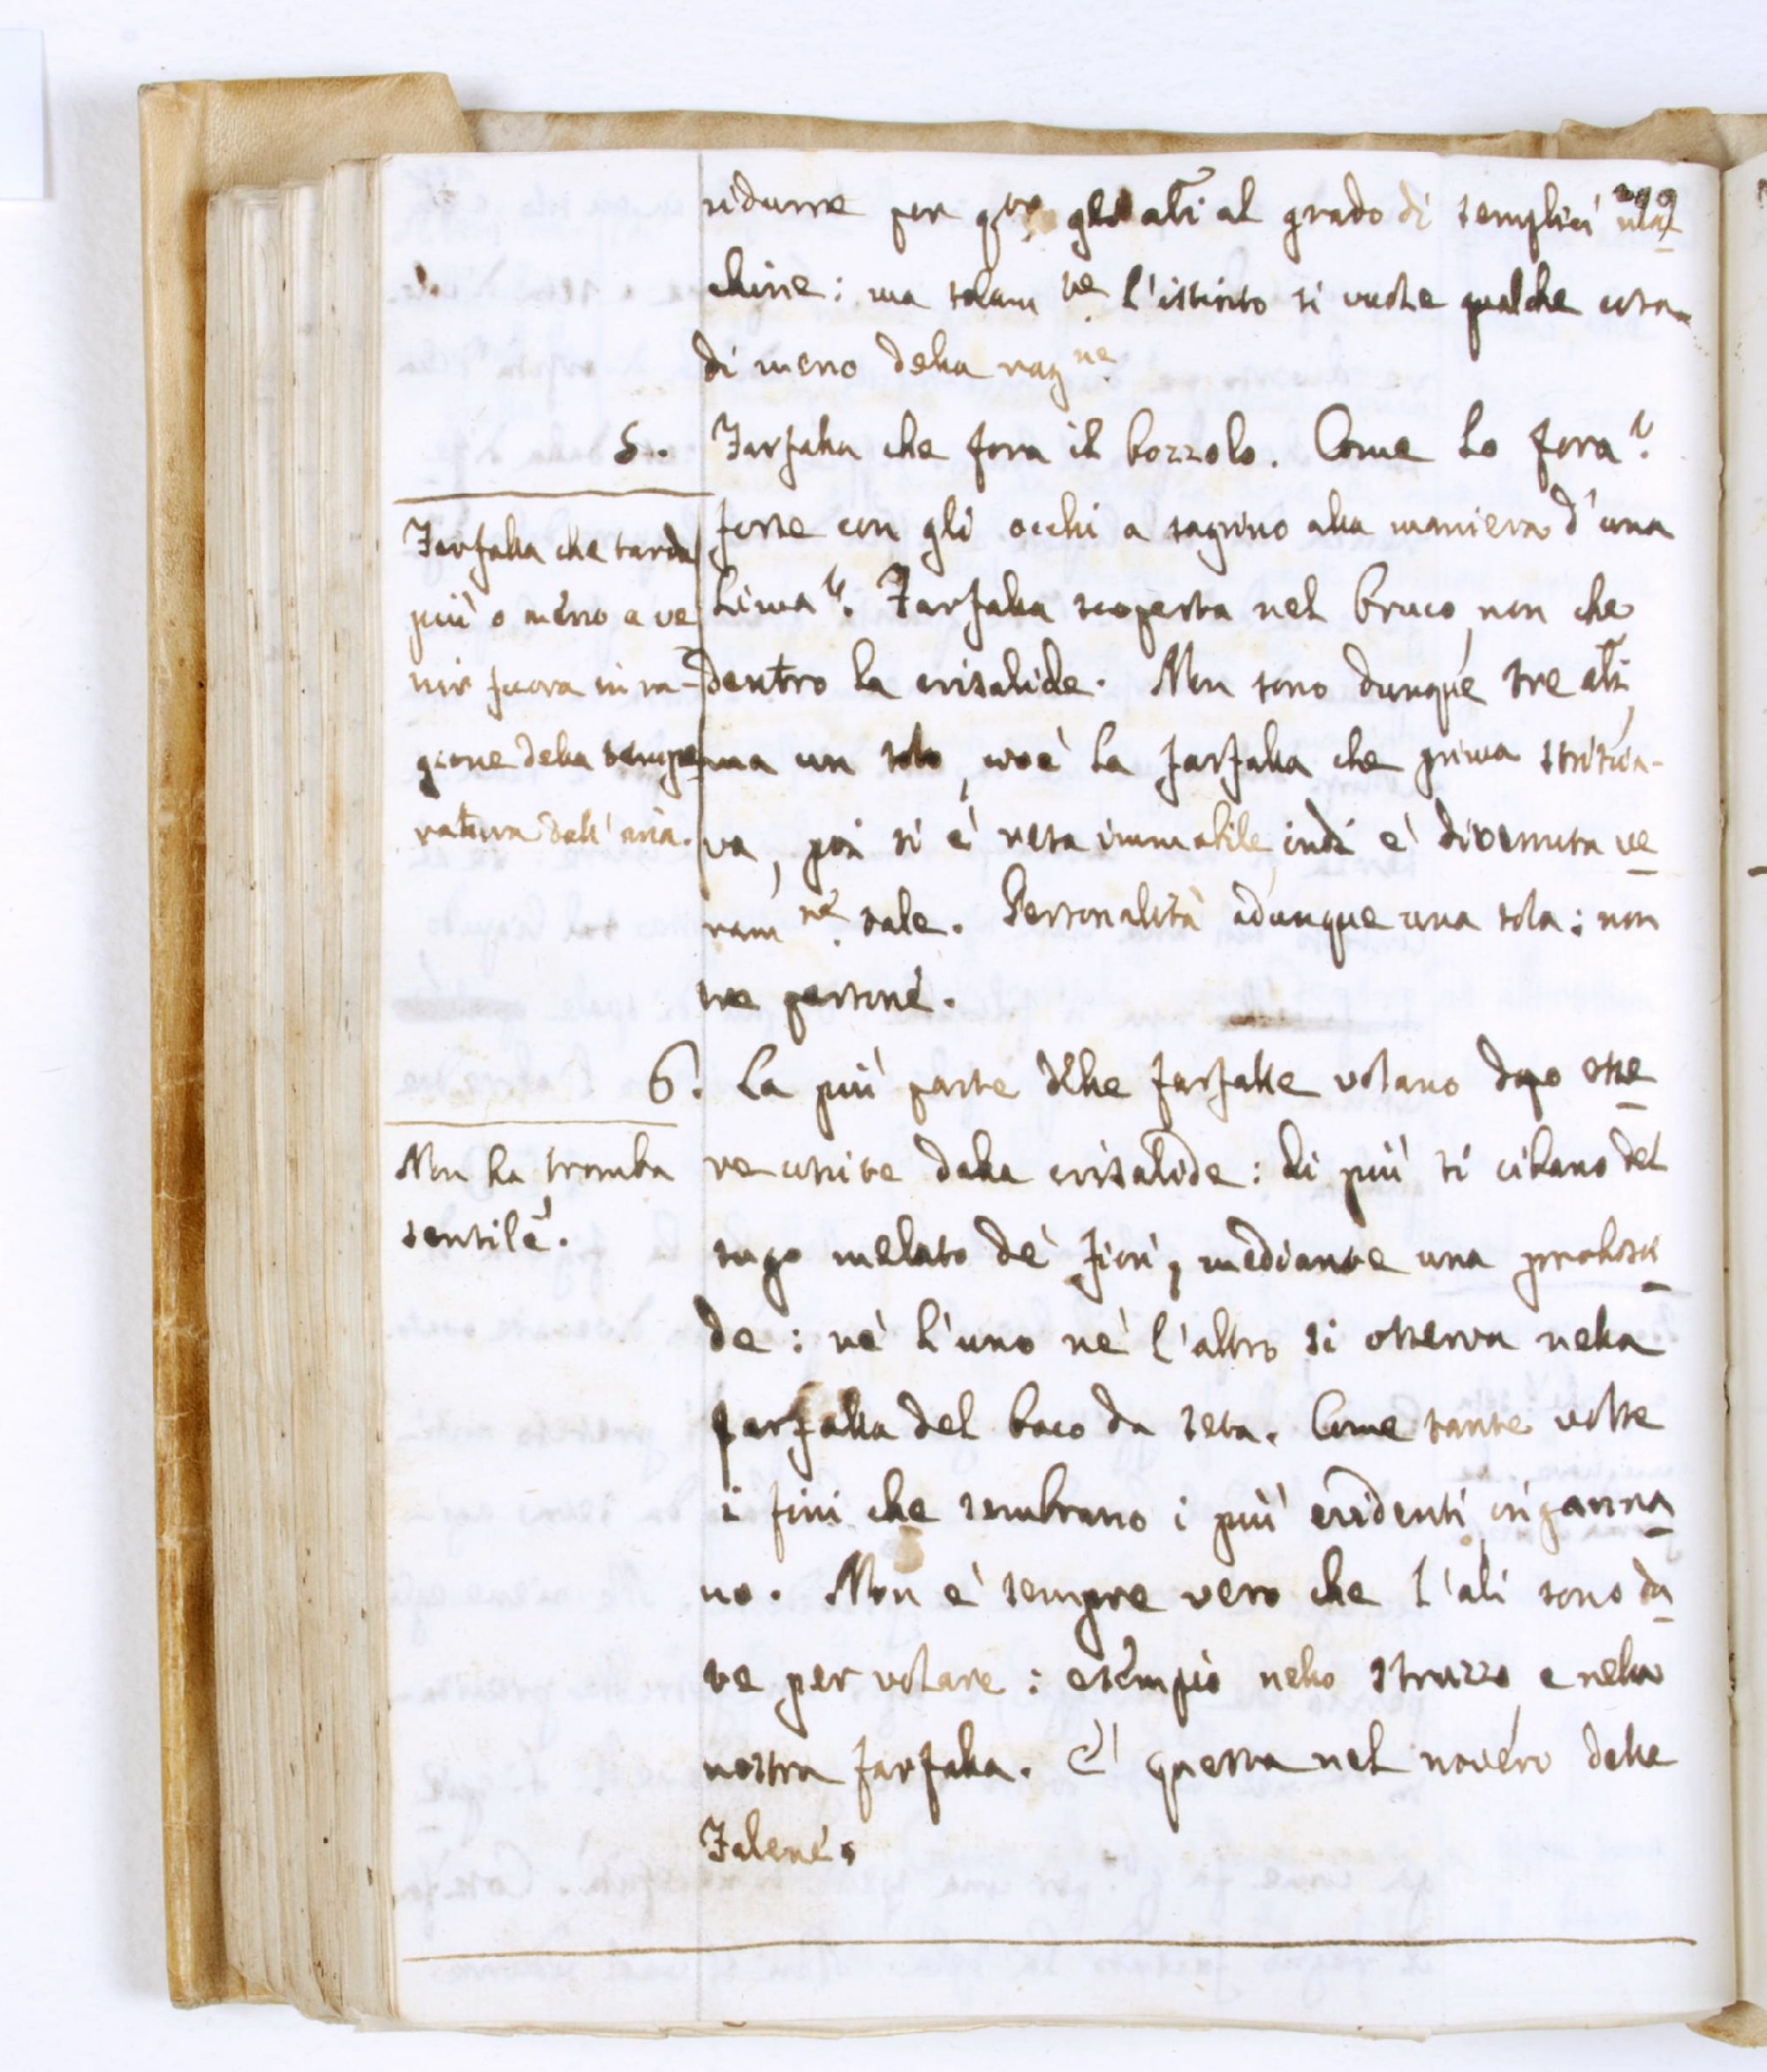 299
ridurre per q.to gli ali al grado di semplici mac
chine: ma solam.te l'istinto si vuole qualche cosa
di meno della rag.ne
5. Farfalla che fora il bozzolo. Come lo fora?
forse con gli occhi a sagrino alla maniera d'una
lima? Farfalla scoperta nel bruco, non che
dentro la crisalide. Non sono dunque tre ali,
ma un solo, cioè la farfalla che prima striscia-
va, poi si è resa immobile, indi è divenuta ve
ram.te tale. Personalità adunque una sola: non
tre persone.
Farfalla che tarda
più o meno a ve
nir fuora in ra-
gione della tempe
ratura dell'aria.
6. La più parte delle farfalle volano dopo esse
re uscite dalla crisalide: di più si cibano del
sugo melato de' fiori, mediante una probosci
de: nè l'uno nè l'altro si osserva nella
farfalla del baco da seta. Come tante volte
i fini che sembrano i più evidenti inganna
no. Non è sempre vero che l'ali sono da
te per volare: esempio nello struzzo e nella
nostra farfalla. È questa nel novero delle
Falene.
Non ha tromba
sensile.